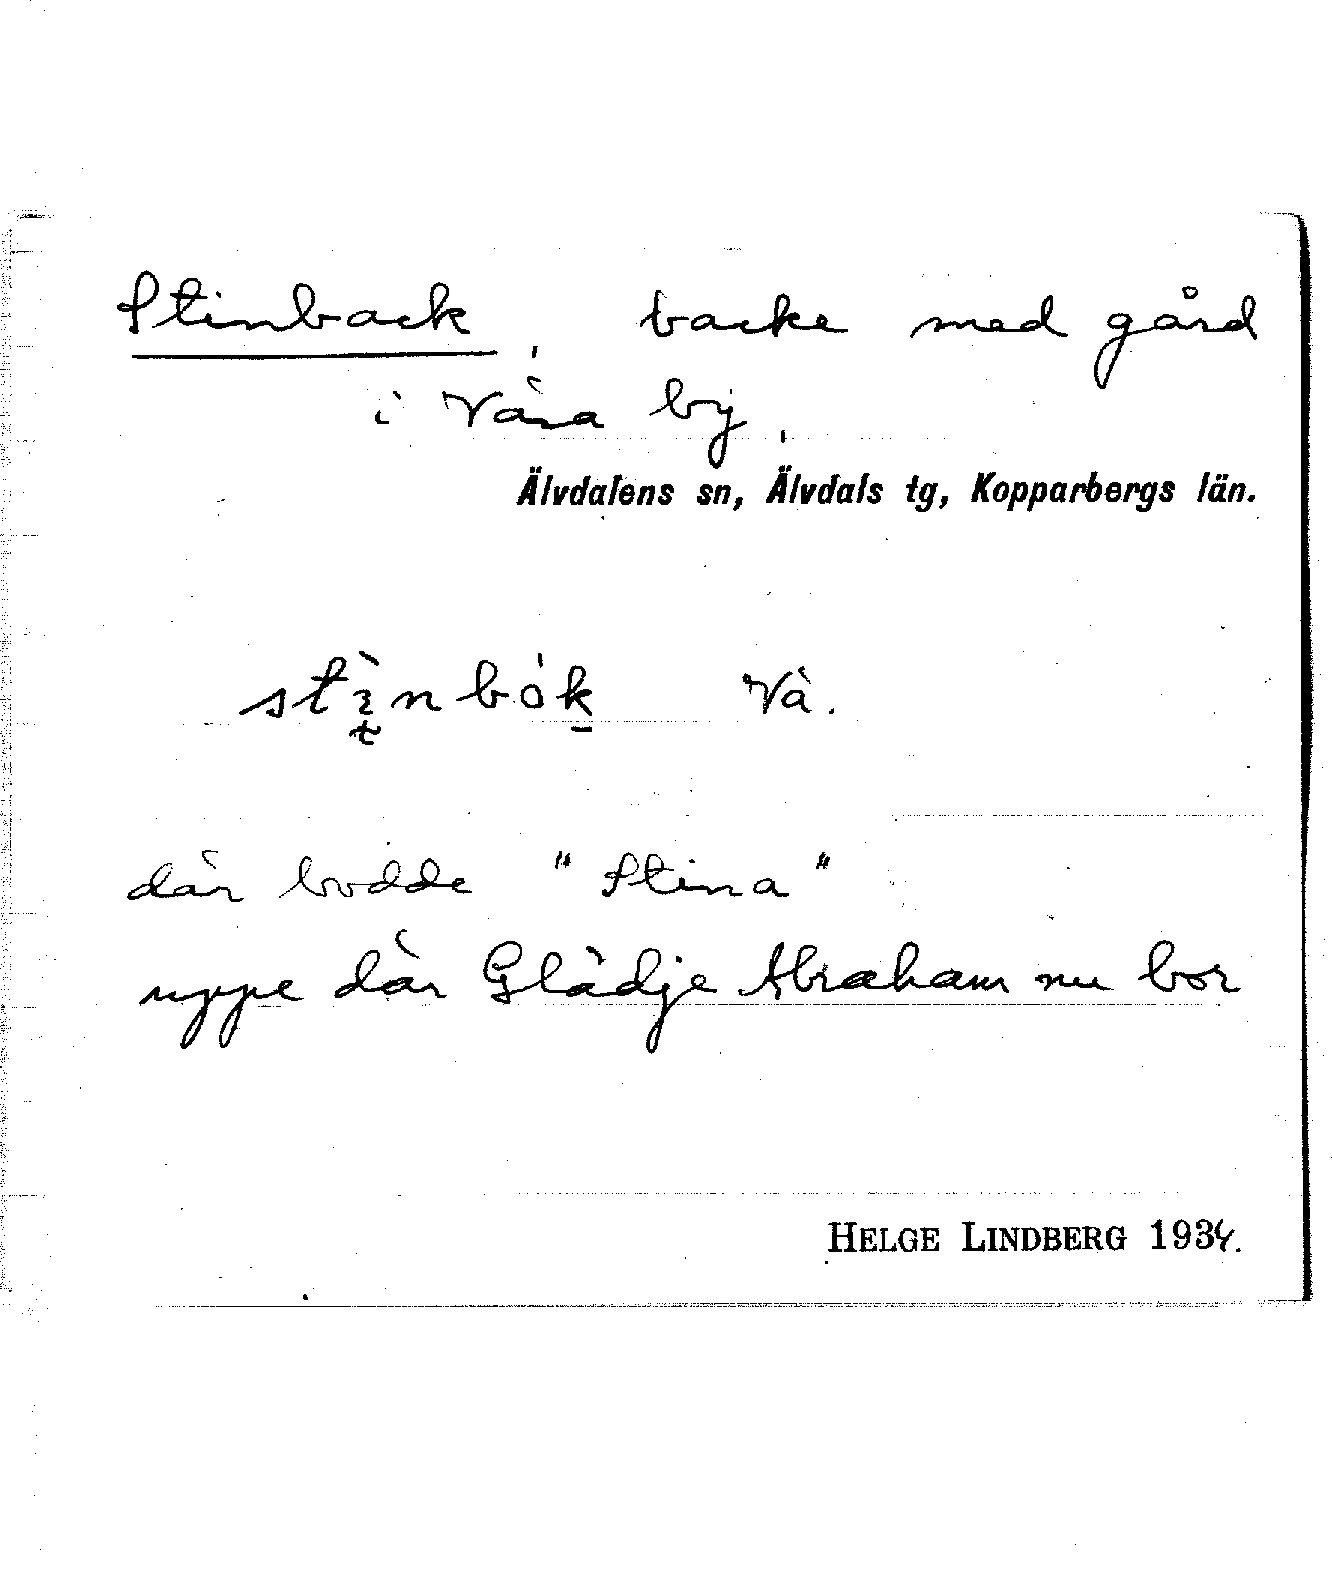 Stinback, backe med gård
i Våsa by,
Älvdalens sn, Älvdals tg, Kopparbergs län.
Vå.
där bodde "Stina"
uppe där Glädje Abraham nu bor
HELGE LINDBERG 1934.